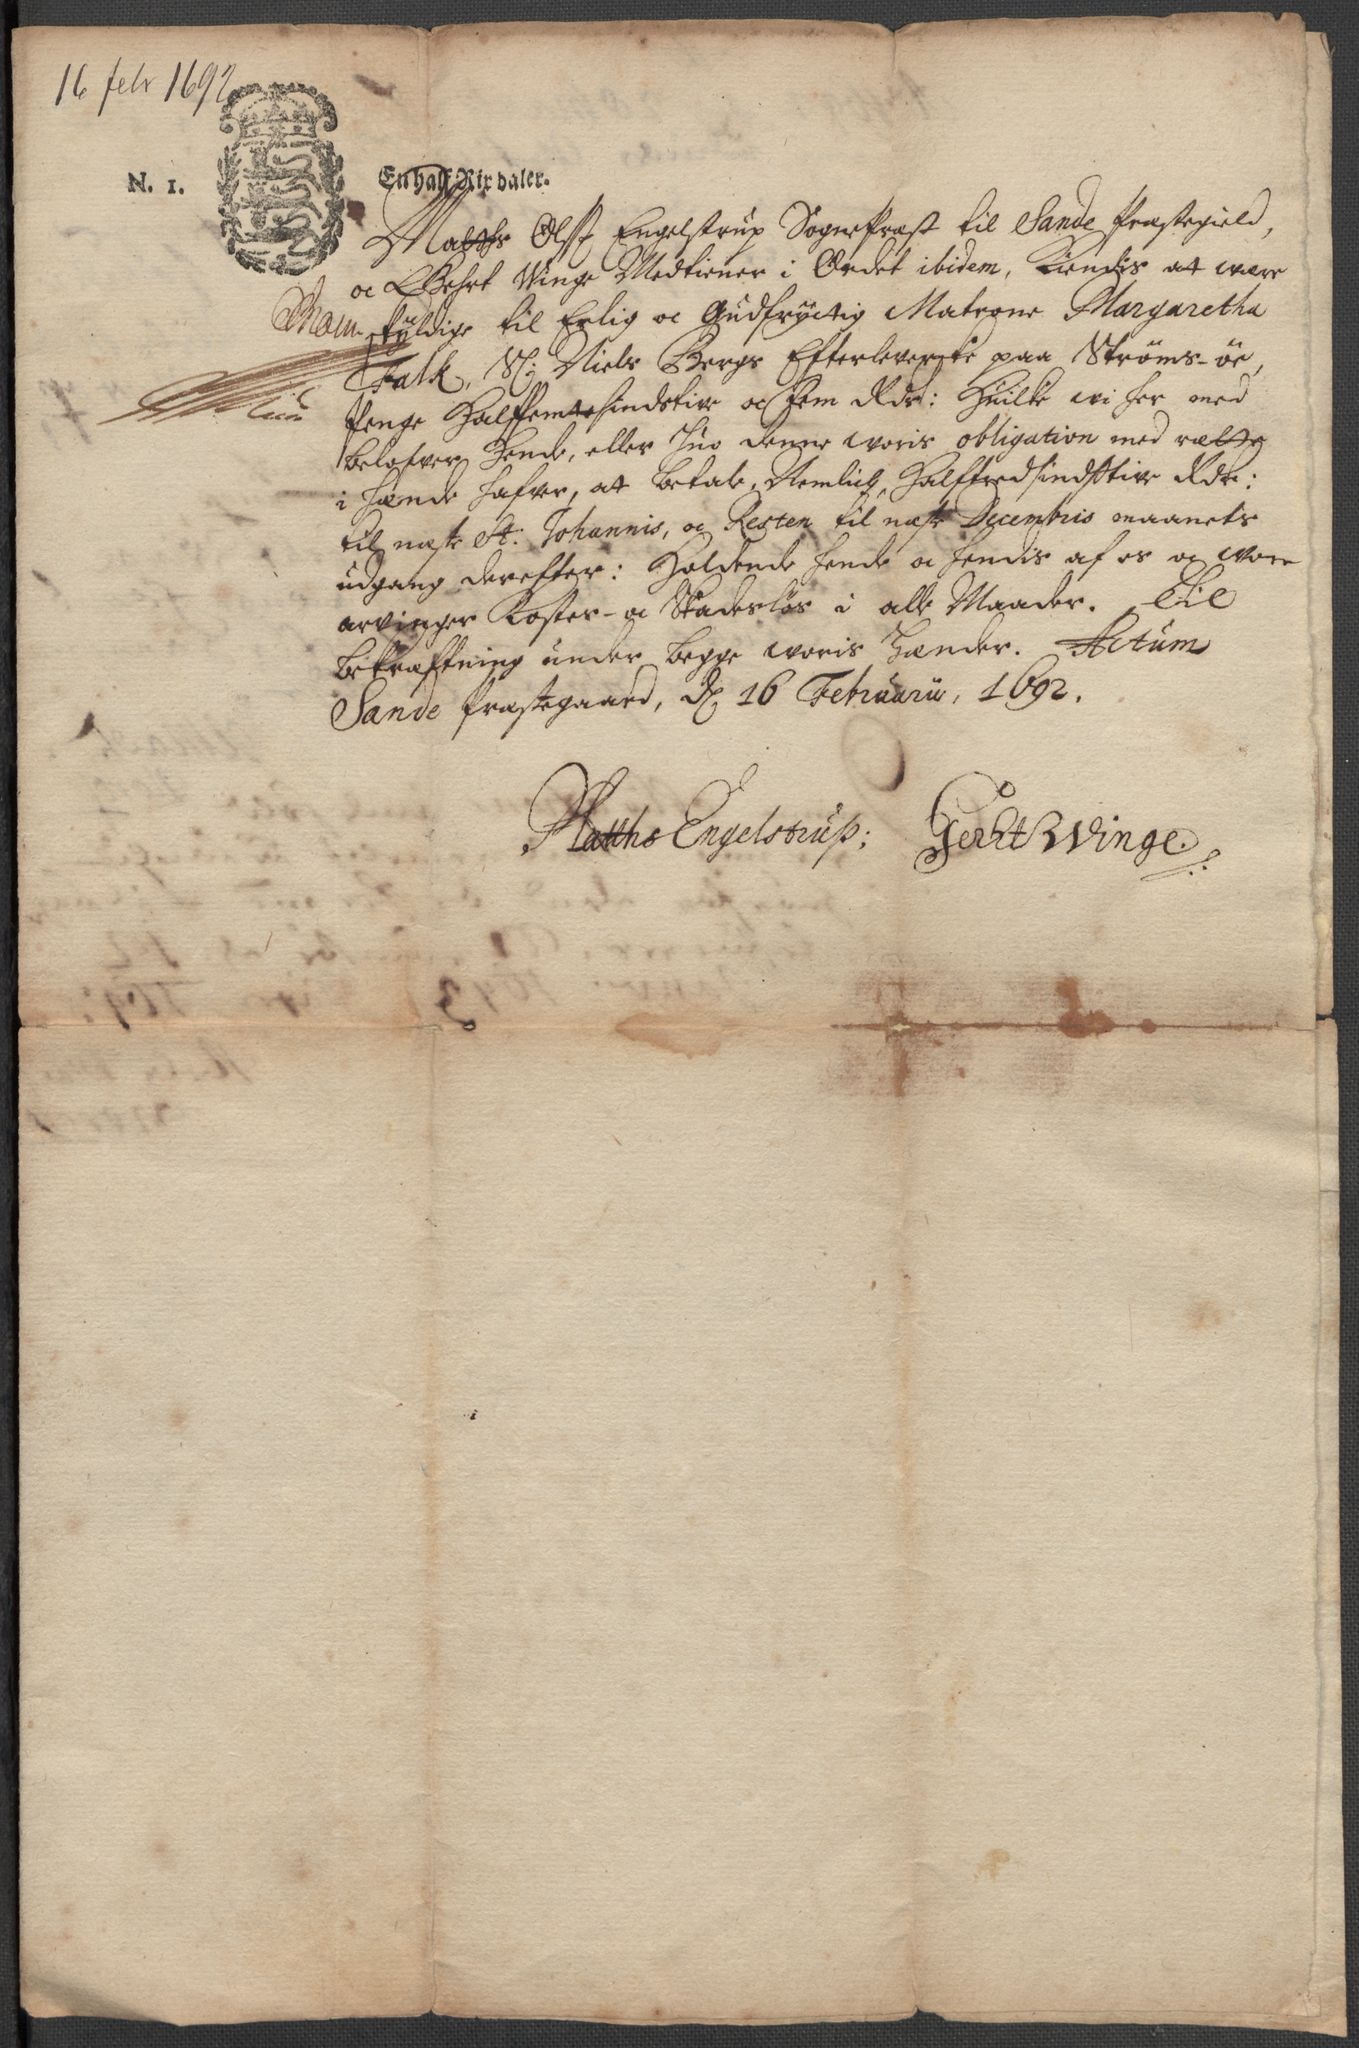 16 febr 1692
N. 1.
En half Rixdaler.
Matths Olss: Engelstrup Sognepræst til Sande Præstegield,
oc Gehrt Winge Medtiener i Ordet ibidem, Kiendis at were
skyldige til Erlig oc Gudfryctig Matrone Margaretha
Falk, Sl: Niels Bergs Efterleverske paa Ströms-öe,
Penge Halffemtesindstive oc Fem Rdr: Huilke wi her med
belofver Hende, eller huo denne woris obligation med rætte
i hænde hafver, at betale, Nemlich, Halftredsindstive Rdr:
til næste St: Johannis, oc Resten til næste Decembris maanets
udgang derefter: Holdende hende oc hendis af os oc wore
arvinger Kostes- oc Skadeslös i alle Maader. Til
bekræftning under begge woris Hænder. Actum
Sande Præstegaard, d. 16 Februarii, 1692.
Matths Engelstrup:
Gerht Winge.